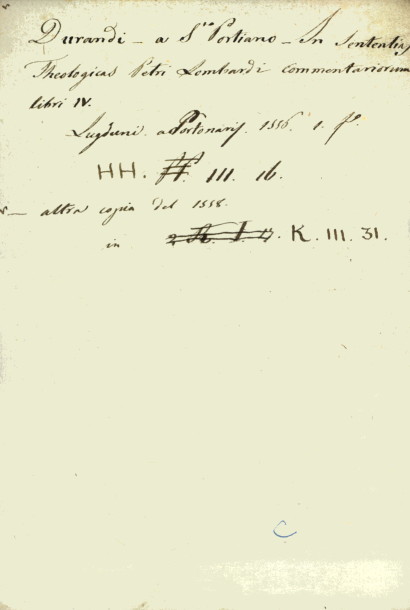 Durandi - a S.to Portiano - In Sententias
Theologicas Petri Lombardi commentariorum
libri IV.
Lugduni. a Portonarijs. 1556. 1. f.o
HH. III. 16.
- altra copia del 1558.
in K. III. 31.
C